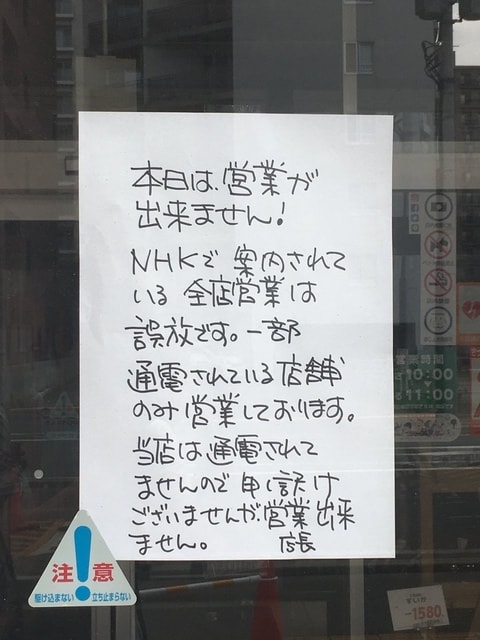 本日は、営業が
出来ません!
NHKで案内されて
いる全店営業は
誤放です。一部
通電されている店舗
のみ営業しております。
当店は通電されて
ませんので申し訳け
ございませんが、営業出来
ません。 店長
注!意
駆け込まない 立ち止まらない
営業時間
10:00
▼
11:00
-1580